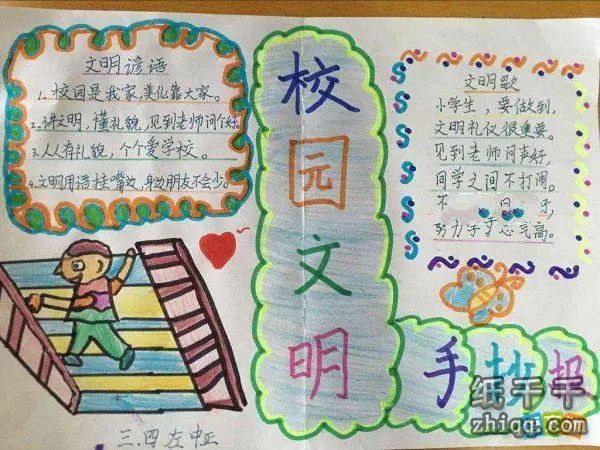 文明谚语
1.校园是我家,美化靠大家。
2.讲文明,懂礼貌,见到老师问个好。
3.人人有礼貌,个个爱学校。
4.文明用语挂嘴边,身边朋友不会少。
校园文明
手抄报
文明歌
小学生,要做到,
文明礼仪很重要。
见到老师问声好,
同学之间不打闹。
不
努力学 志气高。
三.四 左中正
纸千千
zhiqq.com